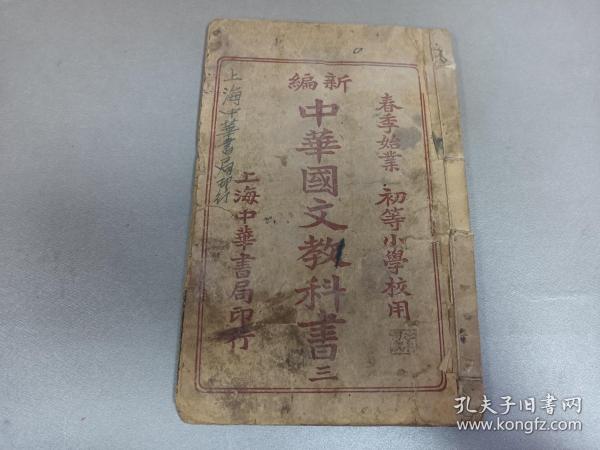 春季始業 初等小學校用
新編
中華國文教科書三
上海中華書局印行
上海中華書局印行
孔夫子旧书网
www.kongfz.com